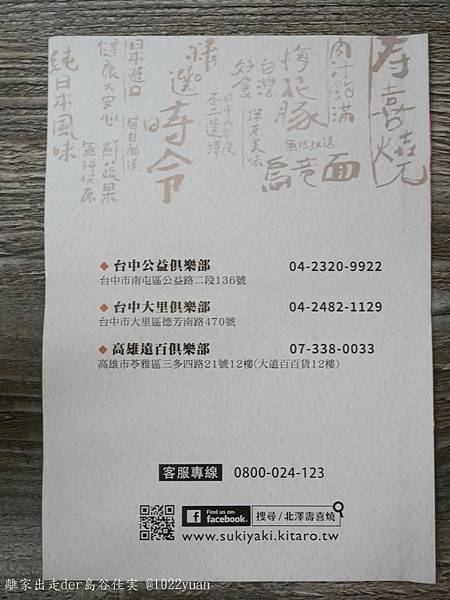 壽喜燒
肉汁飽滿
烏龍面
無限放送
梅花豚
台灣好食
洋牛美味
日本人氣度
不二選擇
精選時令
日本進口
每日配送
健康又安心
鮮蔬果
無限供應
純日本風味
◆ 台中公益俱樂部 04-2320-9922
台中市南屯區公益路二段136號
◆ 台中大里俱樂部 04-2482-1129
台中市大里區德芳南路470號
◆ 高雄遠百俱樂部 07-338-0033
高雄市苓雅區三多四路21號12樓(大遠百百貨12樓)
客服專線 0800-024-123
Find us on: facebook. 搜尋/北澤壽喜燒
www.sukiyaki.kitaro.tw
離家出走der島谷住実 @1022yuan